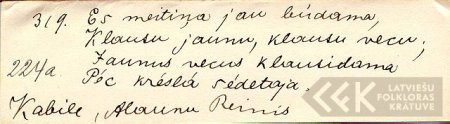 319. Es meitiņa jau būdama,
Klausu jaunu, klausu vecu;
224a. Jaunus vecus klausidama
Pēc krēslā sēdētāja.
Kabile, Alaunu Reinis
LATVIEŠU
FOLKLORAS
KRĀTUVE